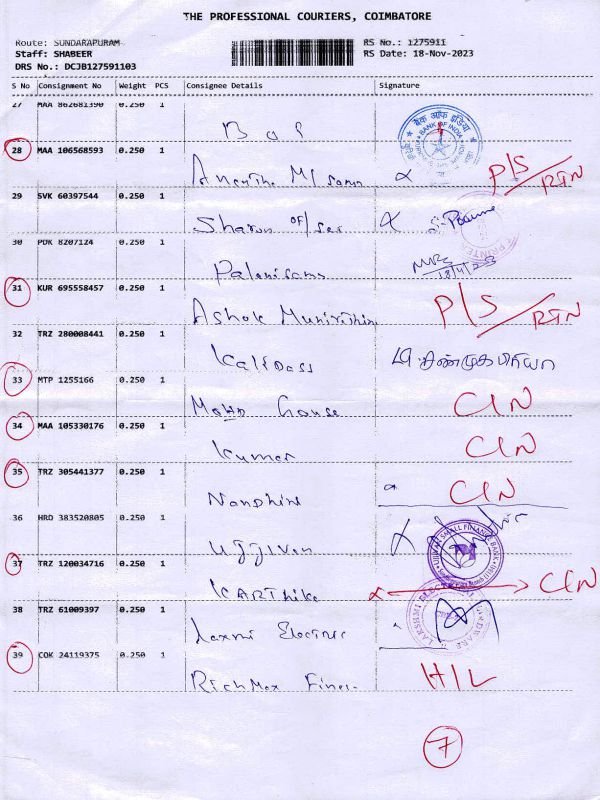 THE PROFESSIONAL COURIERS, COIMBATORE
Route: SUNDARAPURAM
Staff: SHABEER
DRS No.: DCJB127591103
RS No.: 1275911
RS Date: 18-Nov-2023
S No Consignment No Weight PCS Consignee Details Signature
27 MAA 862681390 0.250 1
BOI
BANK OF INDIA
28 MAA 106568593 0.250 1
P/S/RTN
29 SVK 60397544 0.250 1
Sharon
30 PDK 8207124 0.250 1
Palanisamy
31 KUR 695558457 0.250 1
Ashok
P/S/RTN
32 TRZ 280008441 0.250 1
Kalidass
33 MTP 1255166 0.250 1
Mohd Gouse CIN
34 MAA 105330176 0.250 1
Kumar CIN
35 TRZ 305441377 0.250 1
Nandhini CIN
36 HRD 383520805 0.250 1
Ujjivan
UJJIVAN SMALL FINANCE BANK
37 TRZ 120034716 0.250 1
KARThike CIN
38 TRZ 61009397 0.250 1
Laxmi Electric
39 COK 24119375 0.250 1
RichMax Finan H/L
7